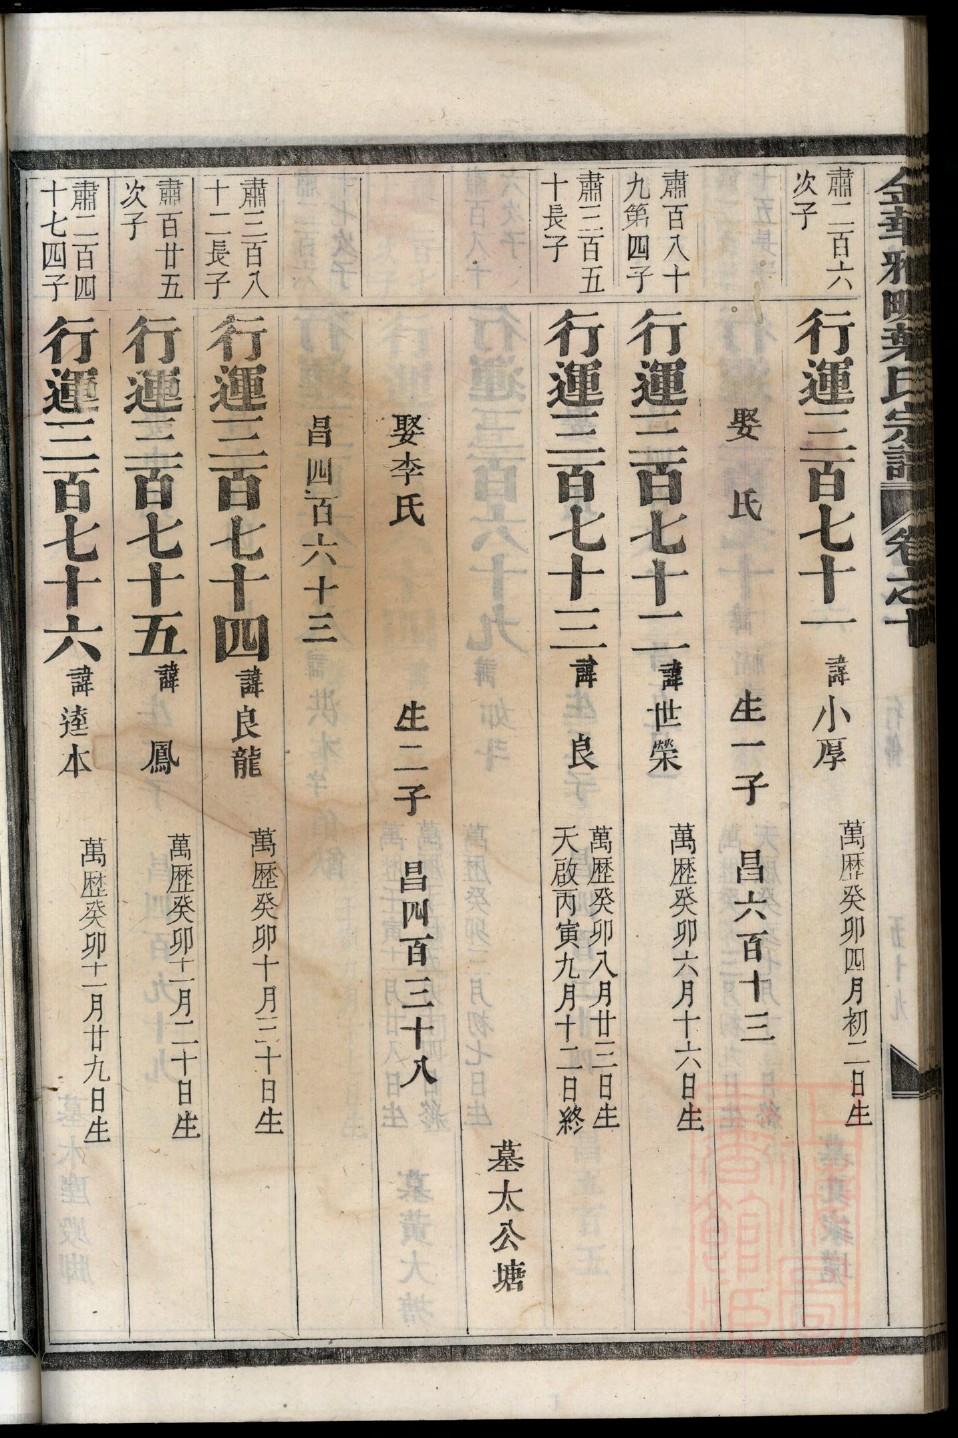 金華雅畈葉氏宗譜 卷之十
肅二百六
次子
行運三百七十一 諱小厚 萬歷癸卯四月初二日生
娶 氏 生一子 昌六百十三
肅百八十
九第四子
行運三百七十二 諱世榮 萬歷癸卯六月十六日生
肅三百五
十長子
行運三百七十三 諱 良 萬歷癸卯八月廿三日生
天啟丙寅九月十二日終
墓太公塘
娶李氏 生二子 昌四百三十八
昌四百六十三
肅三百八
十二長子
行運三百七十四 諱良龍 萬歷癸卯十月三十日生
肅百廿五
次子
行運三百七十五 諱 鳳 萬歷癸卯十一月二十日生
肅二百四
十七四子
行運三百七十六 諱逵本 萬歷癸卯十一月廿九日生